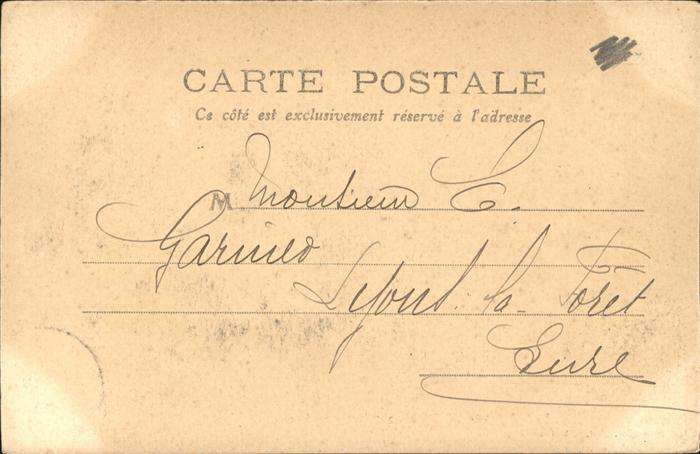 CARTE POSTALE
Ce côté est exclusivement réservé à l'adresse
M. Monsieur C.
Garnier
Lyons la Forêt
Eure